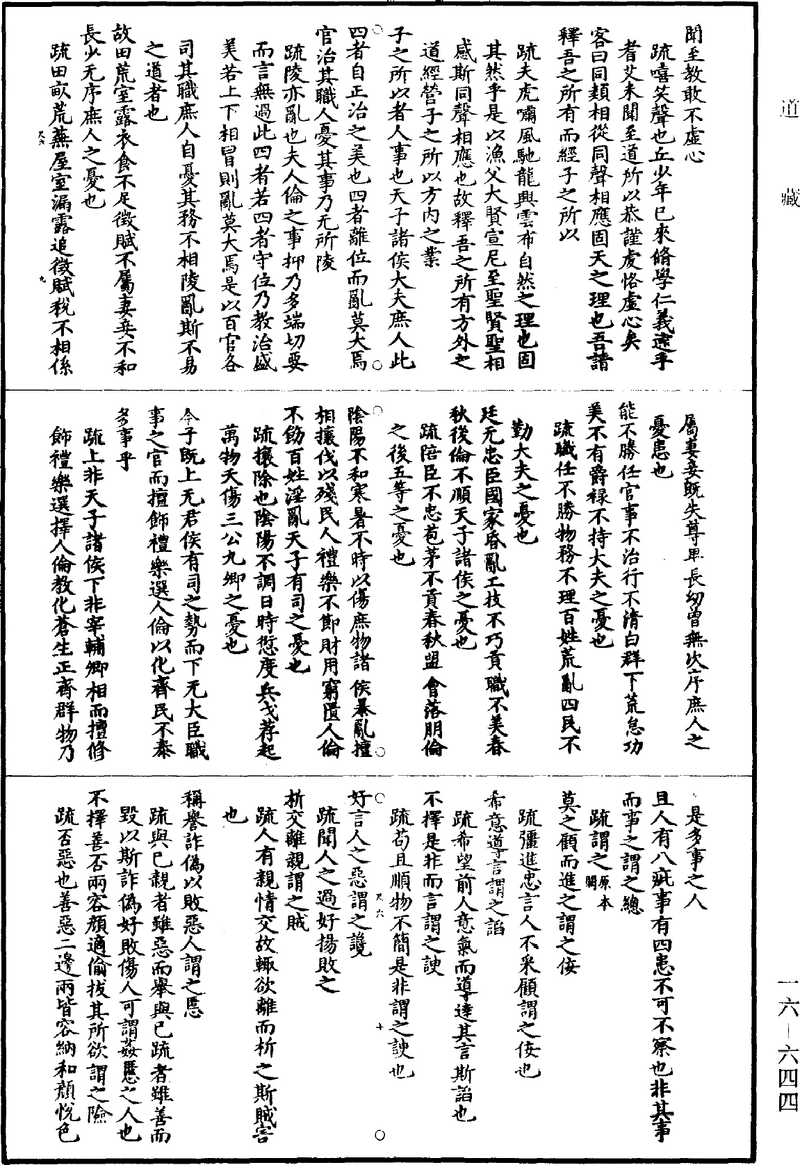 道藏
聞至教敢不虛心
疏嘻笑聲也丘少年已來脩學仁義逮乎
者艾未聞至道所以恭謹虔恪虛心矣
客曰同類相從同聲相應固天之理也吾請
釋吾之所有而經子之所以
疏夫虎嘯風馳龍興雲布自然之理也固
其然乎是以漁父大賢宣尼至聖賢聖相
感斯同聲相應也故釋吾之所有方外之
道經營子之所以方內之業
子之所以者人事也天子諸侯大夫庶人此
四者自正治之美也四者離位而亂莫大焉
官治其職人憂其事乃无所陵
疏陵亦亂也夫人倫之事抑乃多端切要
而言無過此四者若四者守位乃教治盛
美若上下相冒則亂莫大焉是以百官各
司其職庶人自憂其務不相陵亂斯不易
之道者也
故田荒室露衣食不足徵賦不屬妻妾不和
長少无序庶人之憂也
疏田畝荒蕪屋室漏露追徵賦稅不相係
屬妻妾既失尊卑長幼曾無次序庶人之
憂患也
能不勝任官事不治行不清白群下荒怠功
美不有爵祿不持大夫之憂也
疏職任不勝物務不理百姓荒亂四民不
勤大夫之憂也
廷无忠臣國家昏亂工技不巧貢職不美春
秋後倫不順天子諸侯之憂也
疏陪臣不忠苞茅不貢春秋盟會落朋倫
之後五等之憂也
陰陽不和寒暑不時以傷庶物諸侯暴亂擅
相攘伐以殘民人禮樂不節財用窮匱人倫
不飭百姓淫亂天子有司之憂也
疏攘除也陰陽不調日時愆度兵戈荐起
萬物夭傷三公九卿之憂也
今子既上无君侯有司之勢而下无大臣職
事之官而擅飾禮樂選人倫以化齊民不泰
多事乎
疏上非天子諸侯下非宰輔卿相而擅修
飾禮樂選擇人倫教化蒼生正齊群物乃
是多事之人
且人有八疵事有四患不可不察也非其事
而事之謂之總
疏謂之原本闕
莫之顧而進之謂之佞
疏彊進忠言人不采顧謂之佞也
希意導言謂之諂
疏希望前人意氣而導達其言斯諂也
不擇是非而言謂之諛
疏苟且順物不簡是非謂之諛也
好言人之惡謂之讒
疏聞人之過好揚敗之
析交離親謂之賊
疏人有親情交故輒欲離而析之斯賊害
也
稱譽詐偽以敗惡人謂之慝
疏與己親者雖惡而舉與己疏者雖善而
毀以斯詐偽好敗傷人可謂姦慝之人也
不擇善否兩容顏適偷拔其所欲謂之險
疏否惡也善惡二邊兩皆容納和顏悅色
一六—六四四